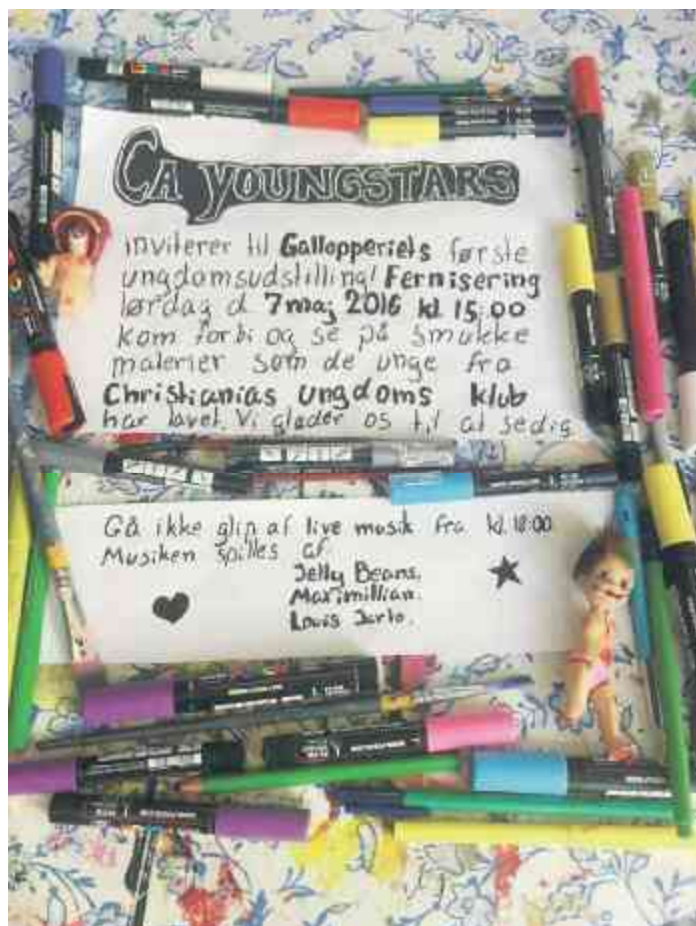 CA YOUNGSTARS
inviterer til Gallopperiets første
ungdomsudstilling! Fernisering
lørdag d 7 maj 2016 kl 15:00
kom forbi og se på smukke
malerier som de unge fra
Christianias ungdoms klub
har lavet. Vi glæder os til at se dig
Gå ikke glip af live musik fra kl. 18:00
Musiken spilles af
Jelly Beans.
Maximillian.
Louis